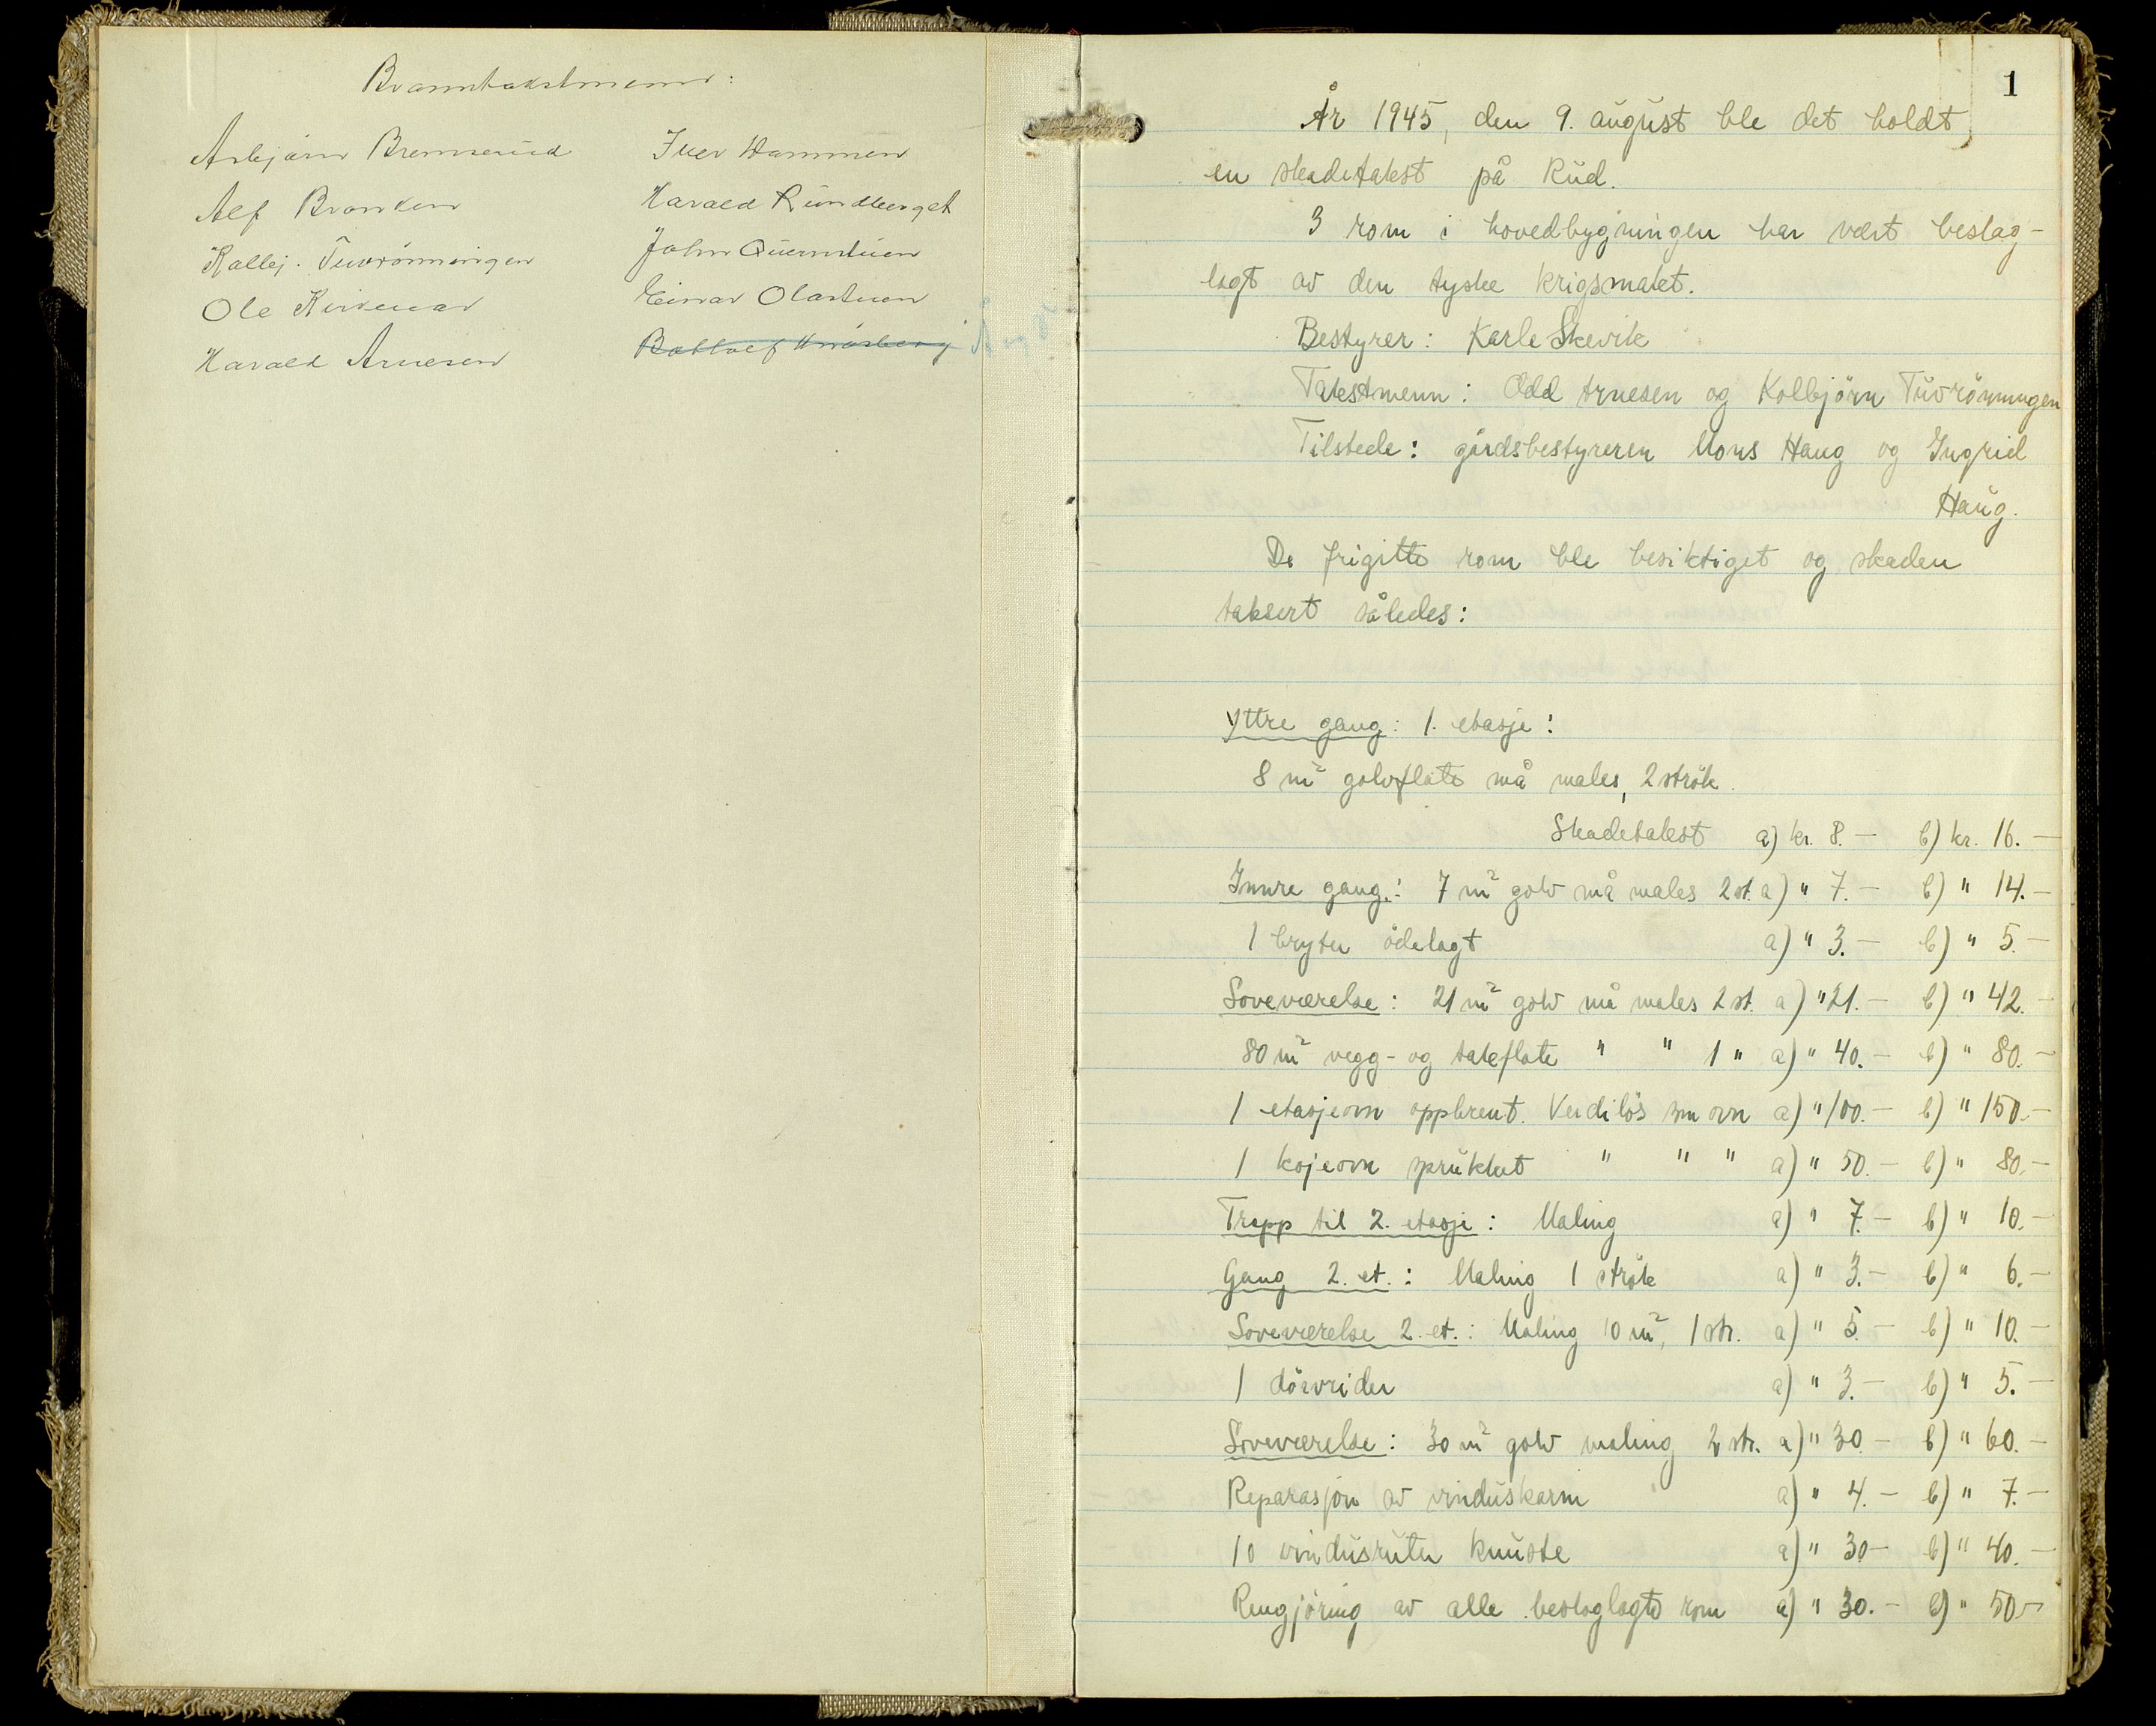 Branntakstmenn:
Asbjørn Bremserud
Alf Branden
Kolbj. Tuvrönningen
Ole Kirkemar
Harald Arnesen
Iver Hammen
Harald Rundberget
John Quernstuen
Einar Olastuen
1
År 1945, den 9. august ble det holdt
en skadetakst på Rud.
3 rom i hovedbygningen har vært beslag-
lagt av den tyske krigsmakt.
Bestyrer: Karle Skevik
Takstmenn: Odd Arnesen og Kolbjörn Tuvrönningen
Tilstede: gårdsbestyreren Mons Haug og Ingrid
Haug.
De frigitte rom ble besiktiget og skaden
taksert således:
Yttre gang: 1. etasje:
8 m² golvflate må males, 2 strök.
Skadetakst a) kr. 8.— b) kr. 16.—
Innre gang: 7 m² golv må males 2 st. a) " 7.— b) " 14.—
1 bryter ödelagt a) " 3.— b) " 5.—
Soveværelse: 21 m² golv må males 2 st. a) " 21.— b) " 42.—
80 m² vegg- og takflate " " 1 " a) " 40.— b) " 80.—
1 etasjeovn oppbrent. Verdilös som ovn a) " 100.— b) " 150.—
1 kojeovn sprukket " " " a) " 50.— b) " 80.—
Trapp til 2. etasje: Maling a) " 7.— b) " 10.—
Gang 2. et.: Maling 1 strök a) " 3.— b) " 6.—
Soveværelse 2. et.: Maling 10 m², 1 str. a) " 5.— b) " 10.—
1 dörvrider a) " 3.— b) " 5.—
Soveværelse: 30 m² golv maling 2 str. a) " 30.— b) " 60.—
Reparasjon av vinduskarm a) " 4.— b) " 7.—
10 vindusruter knuste a) " 30.— b) " 40.—
Rengjöring av alle beslaglagte rom a) " 30.— b) " 50.—